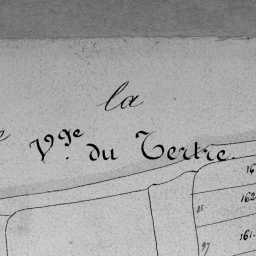 la
Vge. du Tertre.
162
161.